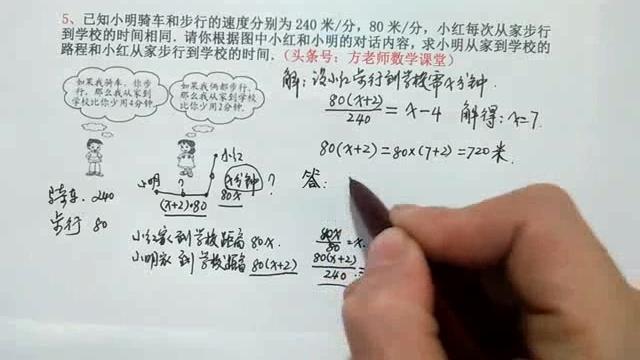 5、已知小明骑车和步行的速度分别为 240 米/分，80 米/分，小红每次从家步行
到学校的时间相同．请你根据图中小红和小明的对话内容，求小明从家到学校的
路程和小红从家步行到学校的时间．（头条号：方老师数学课堂）
如果我骑车，你步
行，那么我从家到
学校比你少用4分钟．
如果我俩都步行，
那么我从家到学校
比你少用2分钟．
解：设小红步行到学校需x分钟．
80(x+2)/240 = x-4 解得：x=7．
80(x+2)=80×(7+2)=720米．
答：
小红
小明 ? x分钟 ?
(x+2)·80 80x
骑车．240
步行 80
小红家到学校距离 80x．
小明家到学校距离 80(x+2)
80x/80 = x．
80(x+2)/240 =